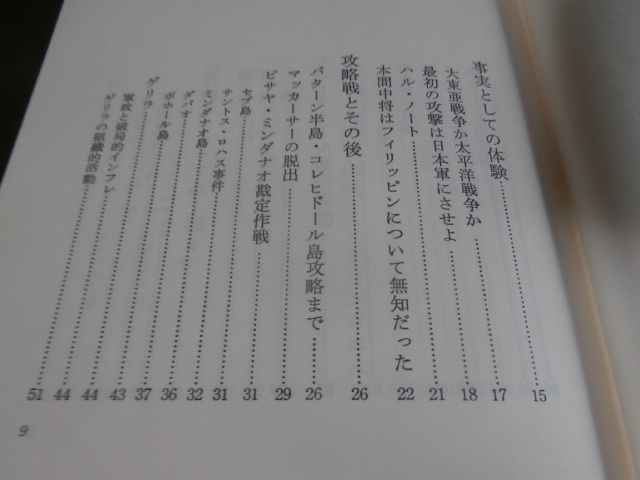 事実としての体験……15
大東亜戦争か太平洋戦争か……17
最初の攻撃は日本軍にさせよ……18
ハル・ノート……21
本間中将はフィリッピンについて無知だった……22
攻略戦とその後……26
バターン半島・コレヒドール島攻略まで……26
マッカーサーの脱出……29
ビサヤ・ミンダナオ戡定作戦……31
セブ島……31
サントス・ロハス事件……32
ミンダナオ島……36
ダバオ……37
ボホール島……43
ゲリラ……44
軍政と破局的インフレ……44
ゲリラの組織的活動……51
9